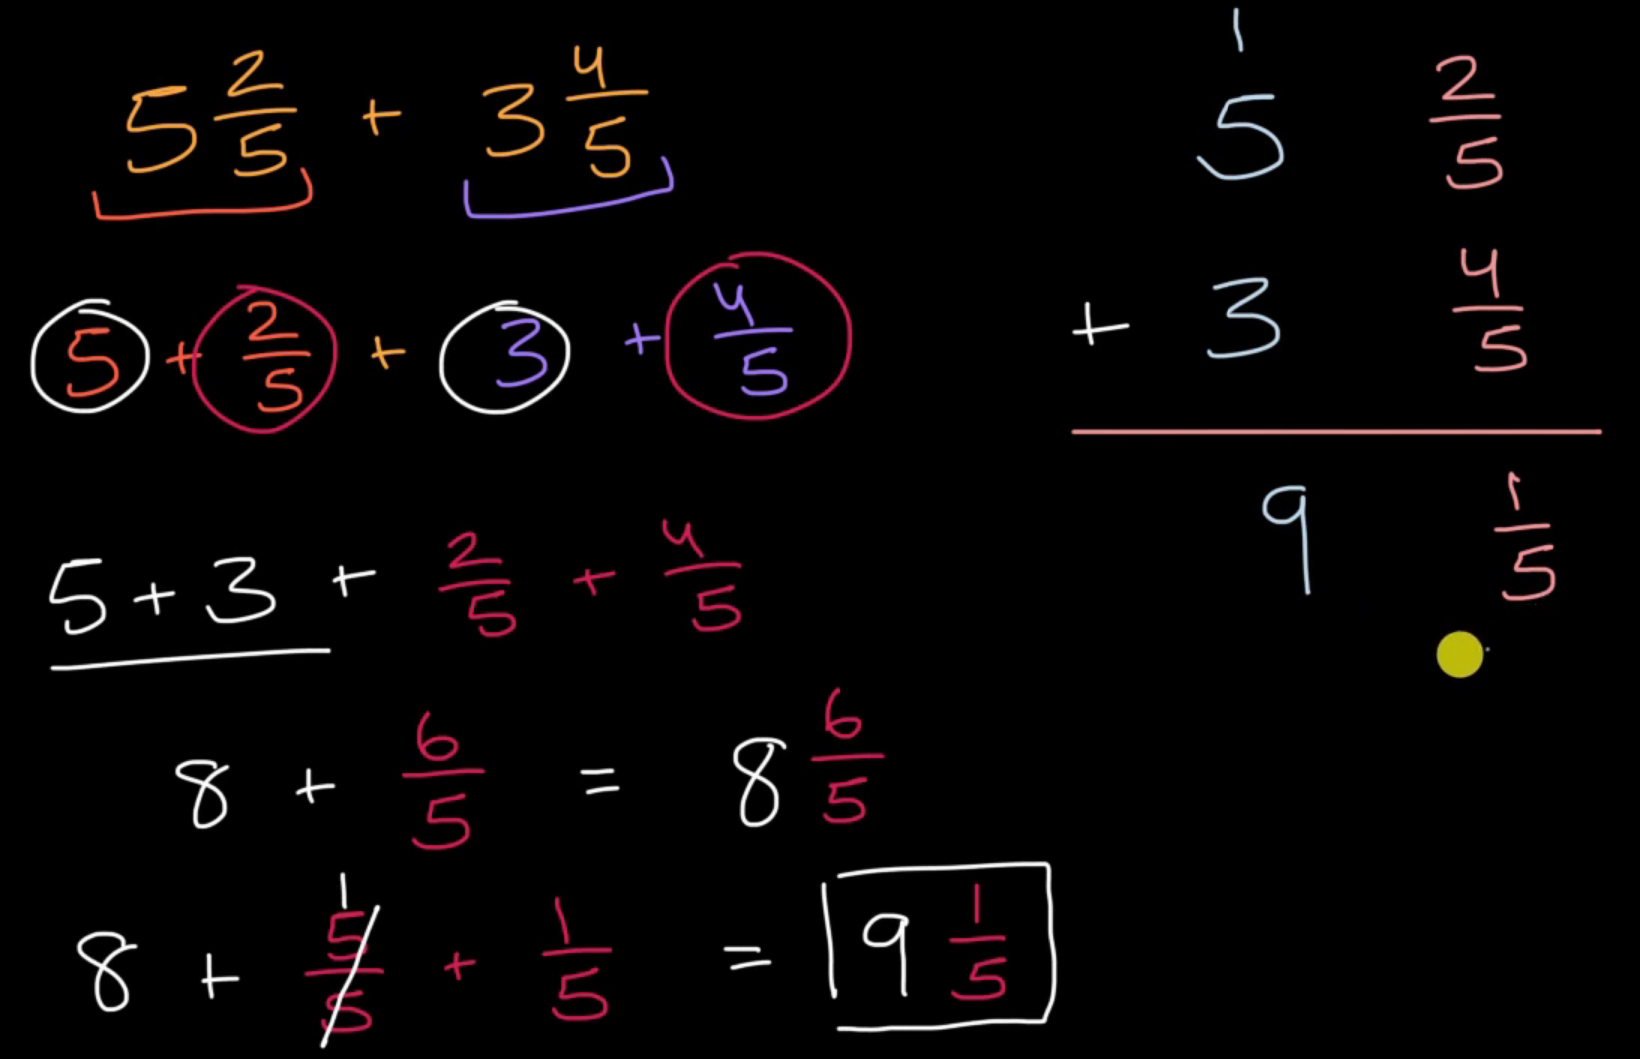 5 2/5 + 3 4/5
5 + 2/5 + 3 + 4/5
5 + 3 + 2/5 + 4/5
8 + 6/5 = 8 6/5
1
8 + 5/5 + 1/5 = 9 1/5
1
5 2/5
+ 3 4/5
9 1/5